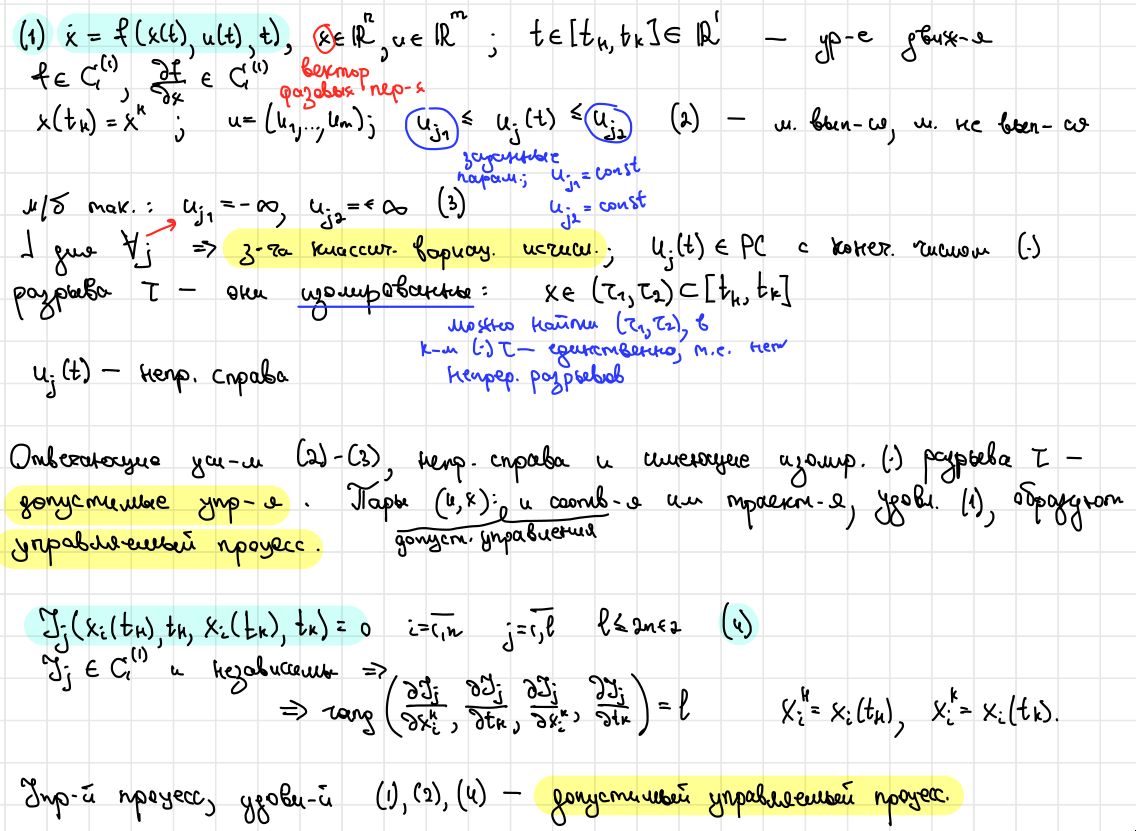 (1) ẋ = f(x(t), u(t), t), x ∈ ℝⁿ, u ∈ ℝᵐ ; t ∈ [tₙ, tₖ] ∈ ℝ¹ — ур-е движ-я
f ∈ C⁽¹⁾, ∂f/∂x ∈ C⁽¹⁾
вектор
фазовых пер-х
x(tₙ) = xᴴ ; u = (u₁, ..., uₘ); u_{j1} ≤ u_j(t) ≤ u_{j2} (2) — м. вып-ся, м. не вып-ся
заданные
парам.; u_{j1} = const
u_{j2} = const
м/б так.: u_{j1} = -∞, u_{j2} = +∞ (3)
↓ для ∀j ⇒ з-ча классич. вариац. исчисл.; u_j(t) ∈ PC с конеч. числом (·)
разрыва τ — они изолированные: x ∈ (τ₁, τ₂) ⊂ [tₙ, tₖ]
можно найти (τ₁, τ₂), в
к-м (·) τ — единственно, т.е. нет
непрер. разрывов
u_j(t) — непр. справа
Отвечающие усл-м (2)-(3), непр. справа и имеющие изолир. (·) разрыва τ —
допустимые упр-я. Пары (u, x): и соотв-я им траект-я, удовл. (1), образуют
допуст. управления
управляемый процесс.
J_j(x_i(tₙ), tₙ, x_i(tₖ), tₖ) = 0 i = 1,n j = 1,l l ≤ 2n+2 (4)
J_j ∈ C⁽¹⁾ и независимы ⇒
⇒ rang (∂J_j/∂x_iᴴ, ∂J_j/∂tₙ, ∂J_j/∂x_iᵏ, ∂J_j/∂tₖ) = l x_iᴴ = x_i(tₙ), x_iᵏ = x_i(tₖ).
Упр-й процесс, удовл-й (1), (2), (4) — допустимый управляемый процесс.